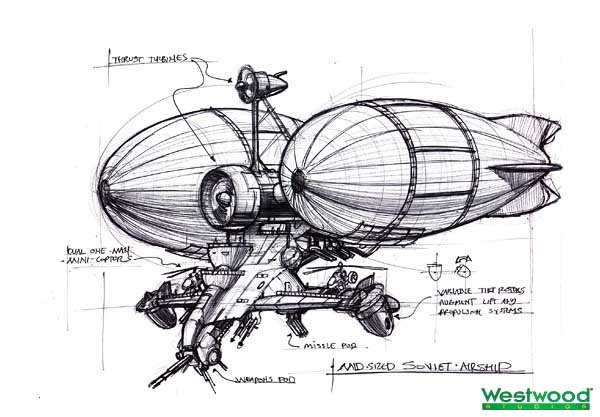 THRUST TURBINES
DUAL ONE-MAN
MINI-COPTORS
VARIABLE TILT ROTORS
AUGMENT LIFT AND
PROPULSION SYSTEMS
MISSLE POD
WEAPONS POD
MID-SIZED SOVIET-AIRSHIP
Westwood
STUDIOS